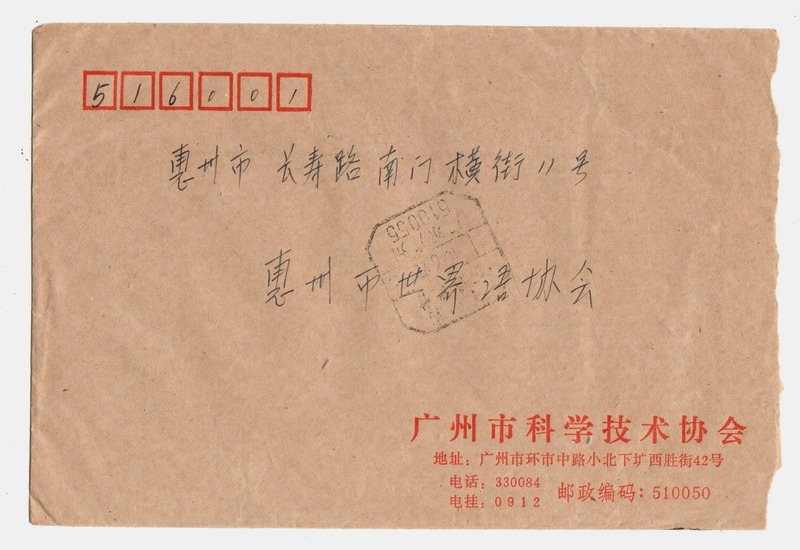 516001
惠州市 长寿路 南门横街11号
510055
惠州市世界语协会
广州市科学技术协会
地址：广州市环市中路小北下圹西胜街42号
电话：330084
电挂：0912
邮政编码：510050